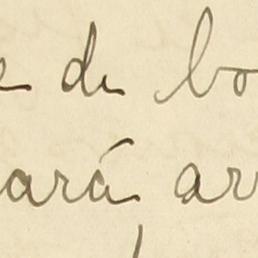 e de bo
ará, ar